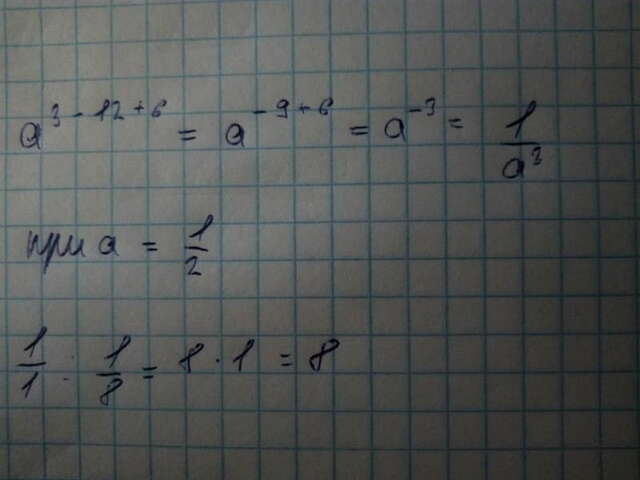 a^{3 - 12 + 6} = a^{-9 + 6} = a^{-3} = \frac{1}{a^3}
при a = \frac{1}{2}
\frac{1}{1} : \frac{1}{8} = 8 · 1 = 8